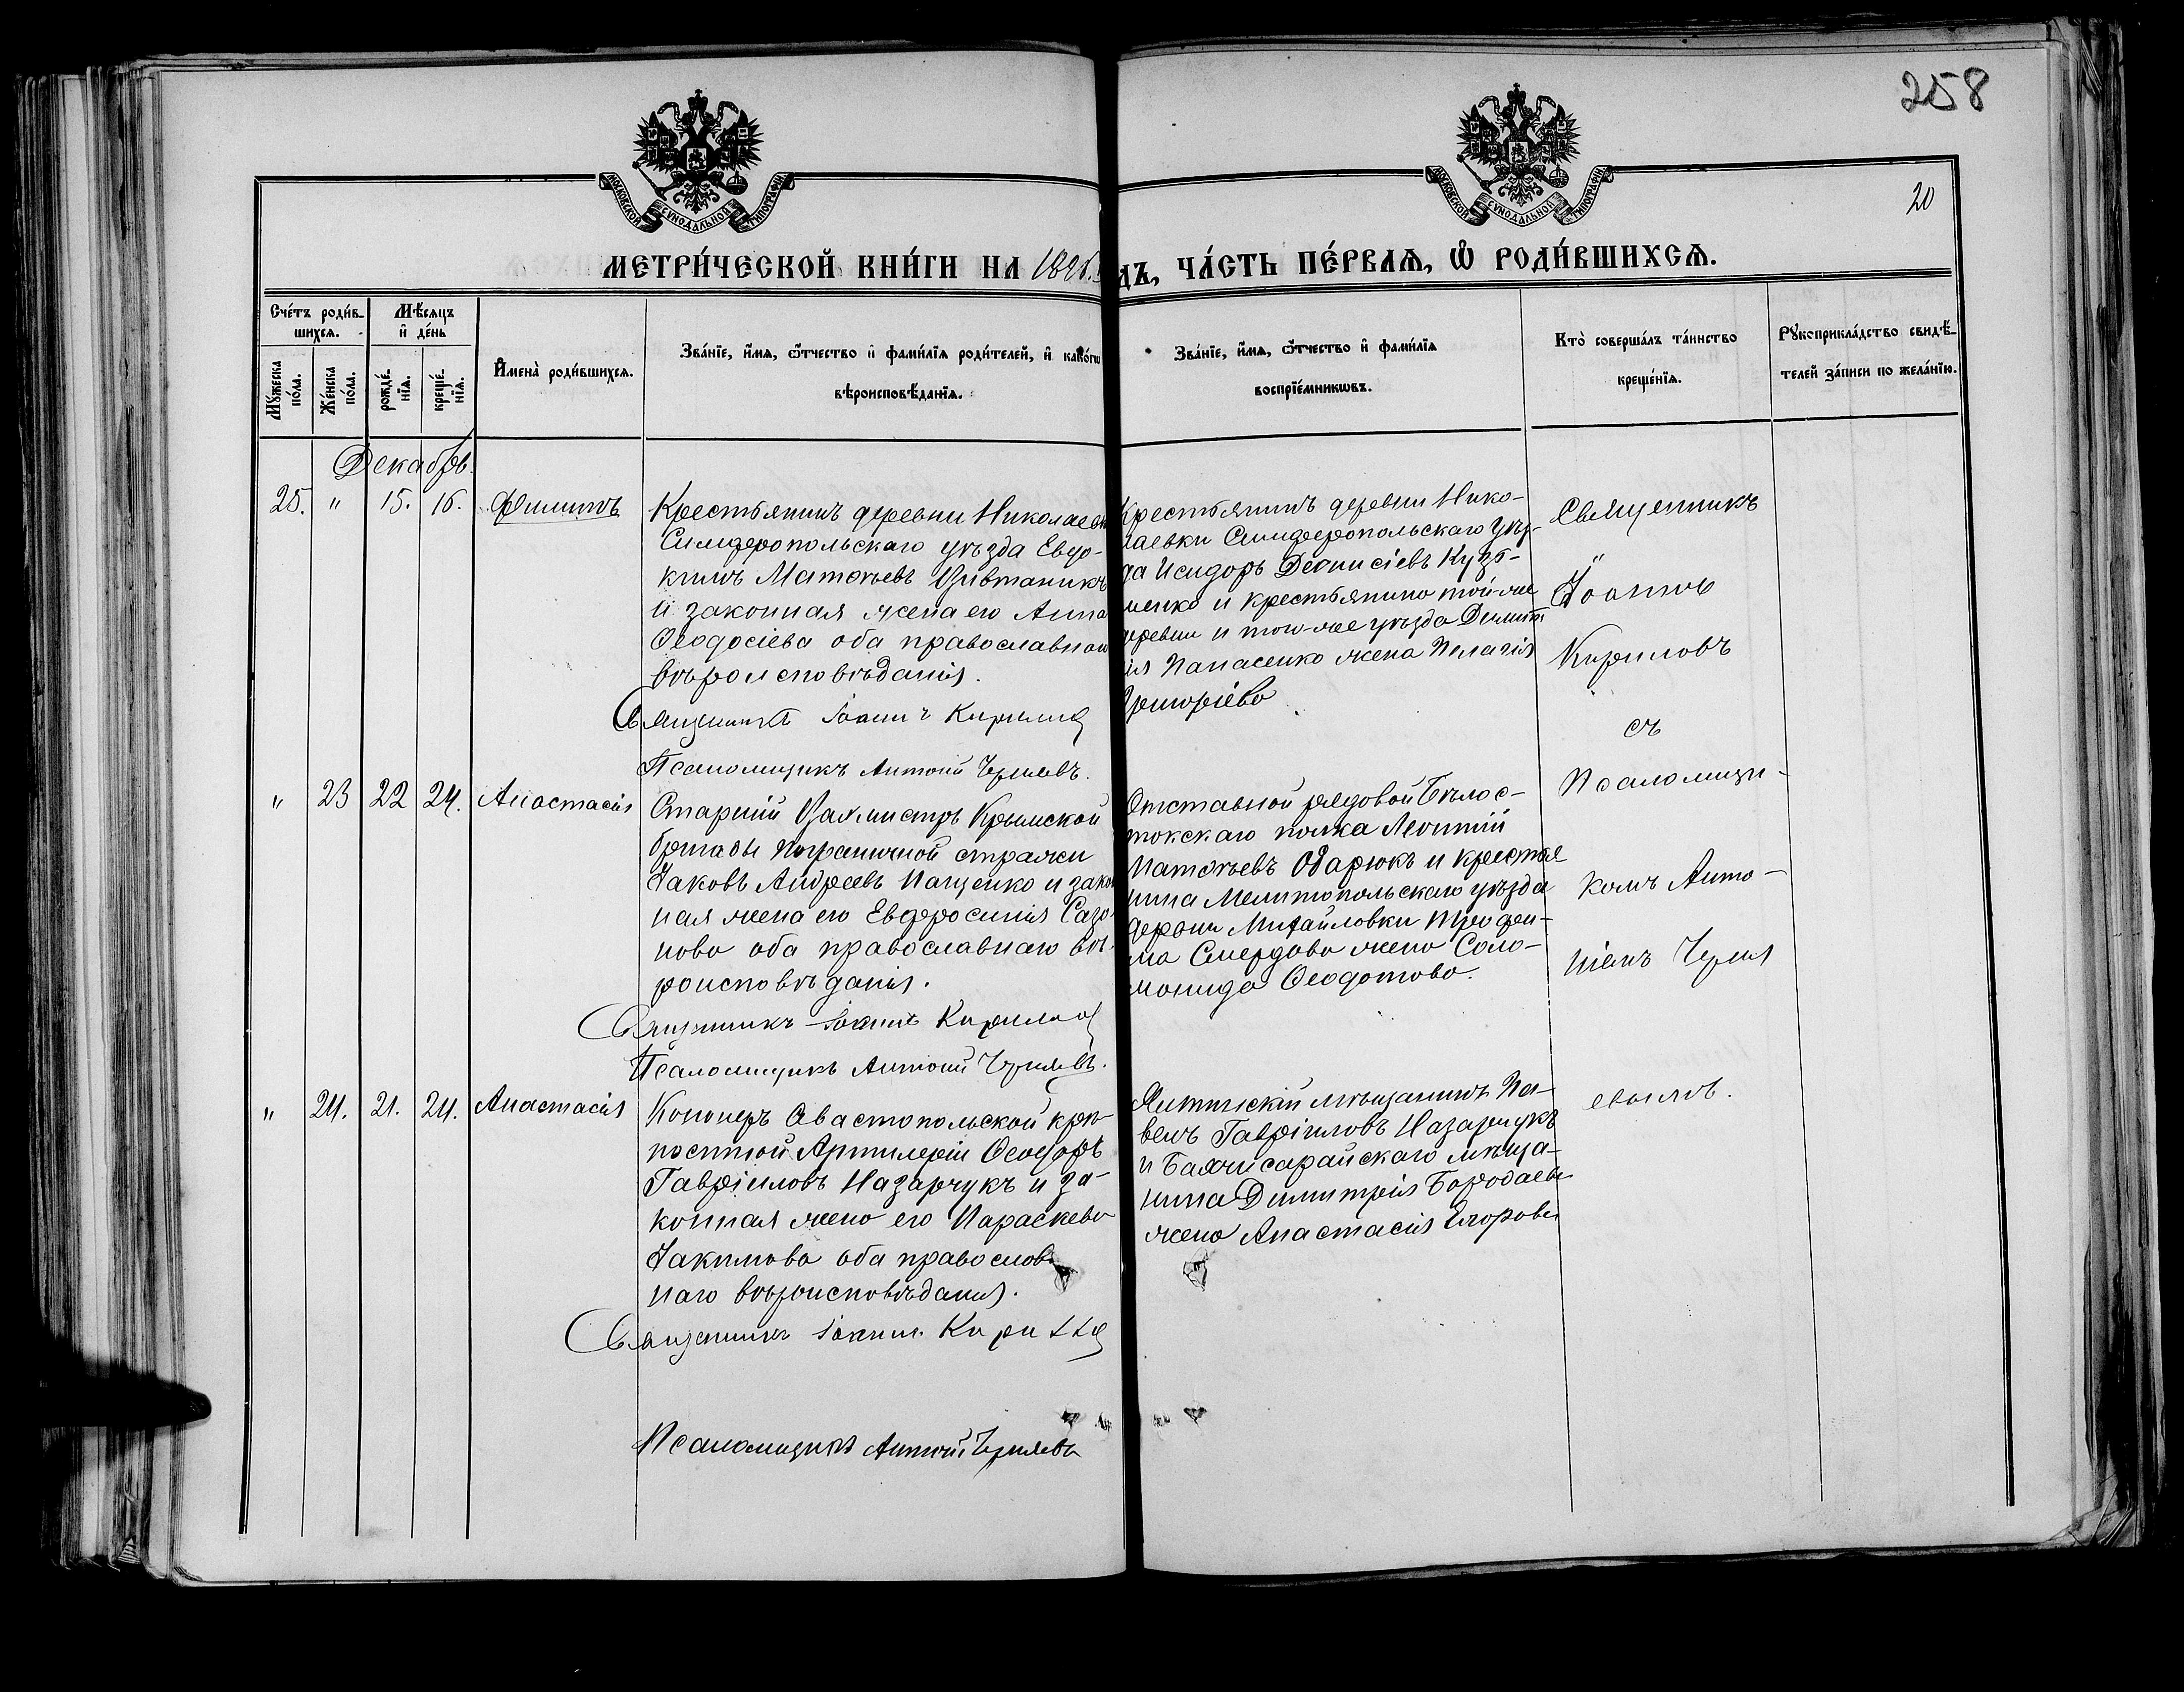 258
20
МОСКОВСКОЙ СѴНОДАЛЬНОЙ ТИПОГРАФІИ
МОСКОВСКОЙ СѴНОДАЛЬНОЙ ТИПОГРАФІИ
МЕТРИ́ЧЕСКОЙ КНИ́ГИ НА
ДЪ, ЧА́СТЬ ПЕ́РВАѦ, Ѡ҆ РОДИ́ВШИХСѦ.
Сче́тъ роди́в-
шихся.
Мѣ́сяцъ
и҆ де́нь
Мꙋ́жеска по́ла.
Же́нска по́ла.
рожде́-
нїя.
креще́-
нїя.
И҆мена̀ роди́вшихся.
Зва́нїе, и҆́мя, ѻ҆́тчество и҆ фами́лїя роди́телей, и҆ како́гѡ
вѣроисповѣ́данїя.
Зва́нїе, и҆́мя, ѻ҆́тчество и҆ фами́лїя
воспрїе́мникѡвъ.
Кто̀ соверша́лъ та́инство
креще́нїя.
Рꙋкоприкла́дство свидѣ́-
телей за́писи по жела́нїю.
Декабрь.
25. " 15. 16. Филиппъ
Крестьянинъ деревни Николаевк
Симферопольскаго уѣзда Евдо-
кимъ Матѳѣевъ
и законная жена его Анна
Ѳеодосіева оба православнаго
вѣроисповѣданія.
Священникъ Іоаннъ Кириловъ
Псаломщикъ Антоній Чернявъ.
Крестьянинъ деревни Нико-
лаевки Симферопольскаго уѣз-
да Исидоръ Діонисіевъ Кузь-
менко и крестьянина той-же
деревни и того-же уѣзда Димит
ія Панасенко жена Пелагія
Григоріева
Священникъ
Іоаннъ
Кириловъ
съ
Псаломщи-
комъ Анто-
ніемъ Черня
евымъ.
" 23 22 24. Анастасія
Старшій Вахмистръ Крымской
бригады пограничной стражи
Яковъ Андреевъ Пащенко и закон
ная жена его Евфросинія Сазо
нова оба православнаго вѣ-
роисповѣданія.
Священникъ Іоаннъ Кириловъ
Псаломщикъ Антоній Чернявъ.
Отставной рядовой Бѣлос-
токскаго полка Леонтій
Матѳѣевъ Обарюкъ и крестья
нина Мелитопольскаго уѣзда
деревни Михайловки Трофи-
ма Смердова жена Соло-
монида Ѳеодотова.
" 24. 21. 24. Анастасія
Канонеръ Авастопольской крѣ-
постной Артилеріи Ѳеодоръ
Гавріиловъ Назарчукъ и за-
конная жена его Параскева
Іакимова оба православ
наго вѣроисповѣданія.
Священникъ Іоаннъ Кириловъ
Псаломщикъ Антоній Чернявъ
Ялтинскій мѣщанинъ Па-
велъ Гавріиловъ Назарчукъ
и Бахчисарайскаго мѣща-
нина Димитрія Бородаева
жена Анастасія Егорова